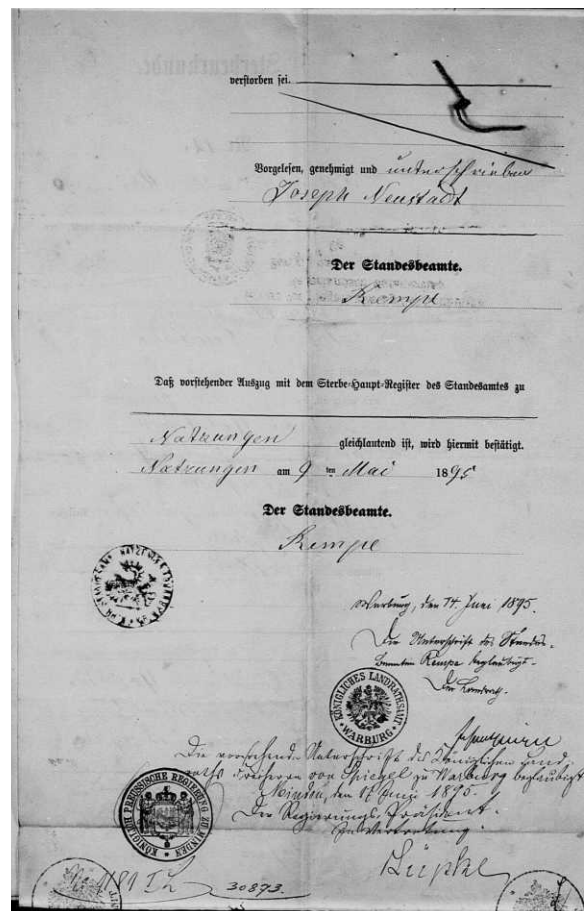 verstorben sei.
Vorgelesen, genehmigt und unterschrieben
Joseph Neustadt
Der Standesbeamte.
Kempe
Daß vorstehender Auszug mit dem Sterbe-Haupt-Register des Standesamtes zu
Natzungen gleichlautend ist, wird hiermit bestätigt.
Natzungen am 9 ten Mai 1895
Der Standesbeamte.
Kempe
Warburg, den 14. Juni 1895.
Die Unterschrift des Standes-
beamten Kempe beglaubigt.
Der Landrath.
KÖNIGLICHES LANDRATHSAMT
WARBURG
Die vorstehende Unterschrift des Königlichen Land-
raths Freiherrn von Spiegel zu Warburg beglaubigt
Minden, den 17. Juni 1895.
Der Regierungs-Präsident.
In Vertretung.
Lüpke
KÖNIGLICH PREUSSISCHE REGIERUNG ZU MINDEN
30873.